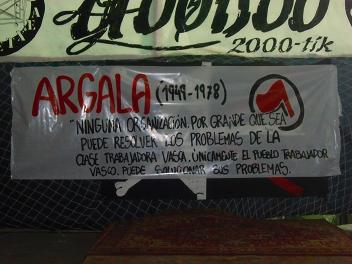 2000-tik
ARGALA (1949-1978)
"NINGUNA ORGANIZACIÓN, POR GRANDE QUE SEA
PUEDE RESOLVER LOS PROBLEMAS DE LA
CLASE TRABAJADORA VASCA. ÚNICAMENTE EL PUEBLO TRABAJADOR
VASCO, PUEDE SOLUCIONAR SUS PROBLEMAS.